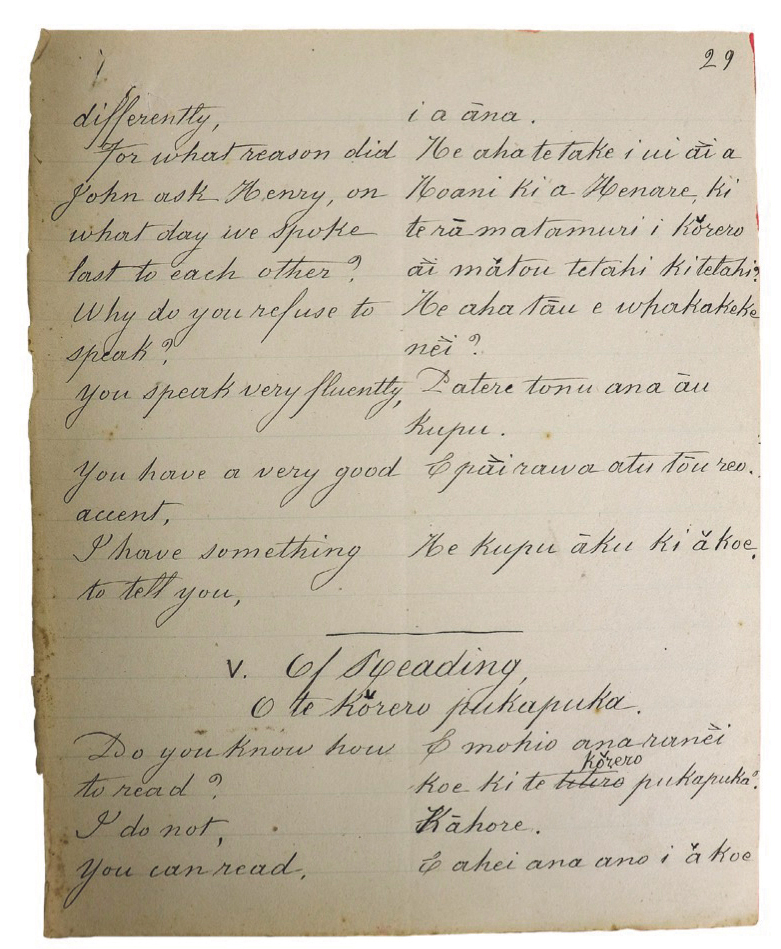 29
differently, i a āna.
For what reason did He aha te take i ui ăi a
John ask Henry, on Hoani ki a Henare, ki
what day we spoke te rā matamuri i kŏrero
last to each other? ăi mătou tetahi ki tetahi?
Why do you refuse to He aha tāu e whakakeke
speak? nĕi?
You speak very fluently, Patere tonu ana āu
kupu.
You have a very good E păi rawa atu tōu reo.
accent,
I have something He kupu āku ki ă koe.
to tell you,
V. Of Reading,
O te kŏrero pukapuka.
Do you know how E mohio ana ranĕi
kŏrero
to read? koe ki te titiro pukapuka?
I do not, Kāhore.
You can read, E ahei ana ano i ă koe